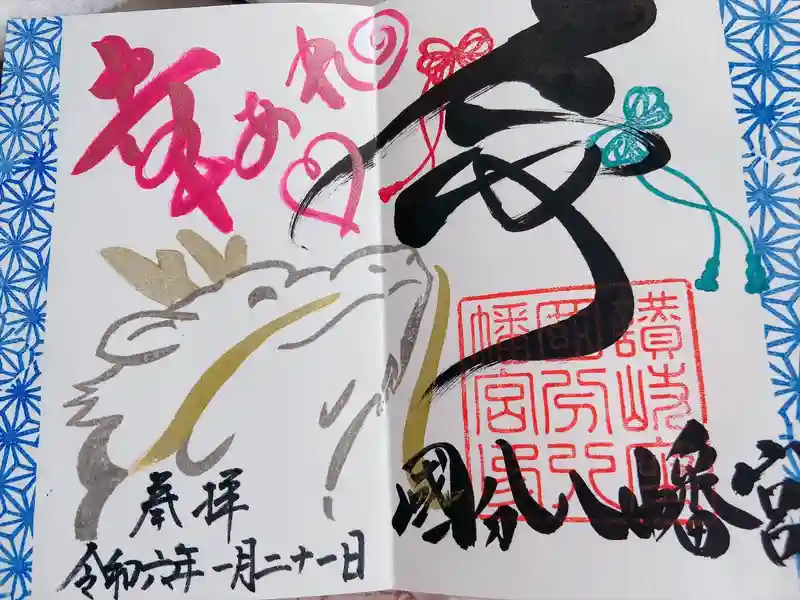 幸あれ
讃岐
國分八
幡宮印
國分八幡宮
奉拝
令和六年一月二十一日